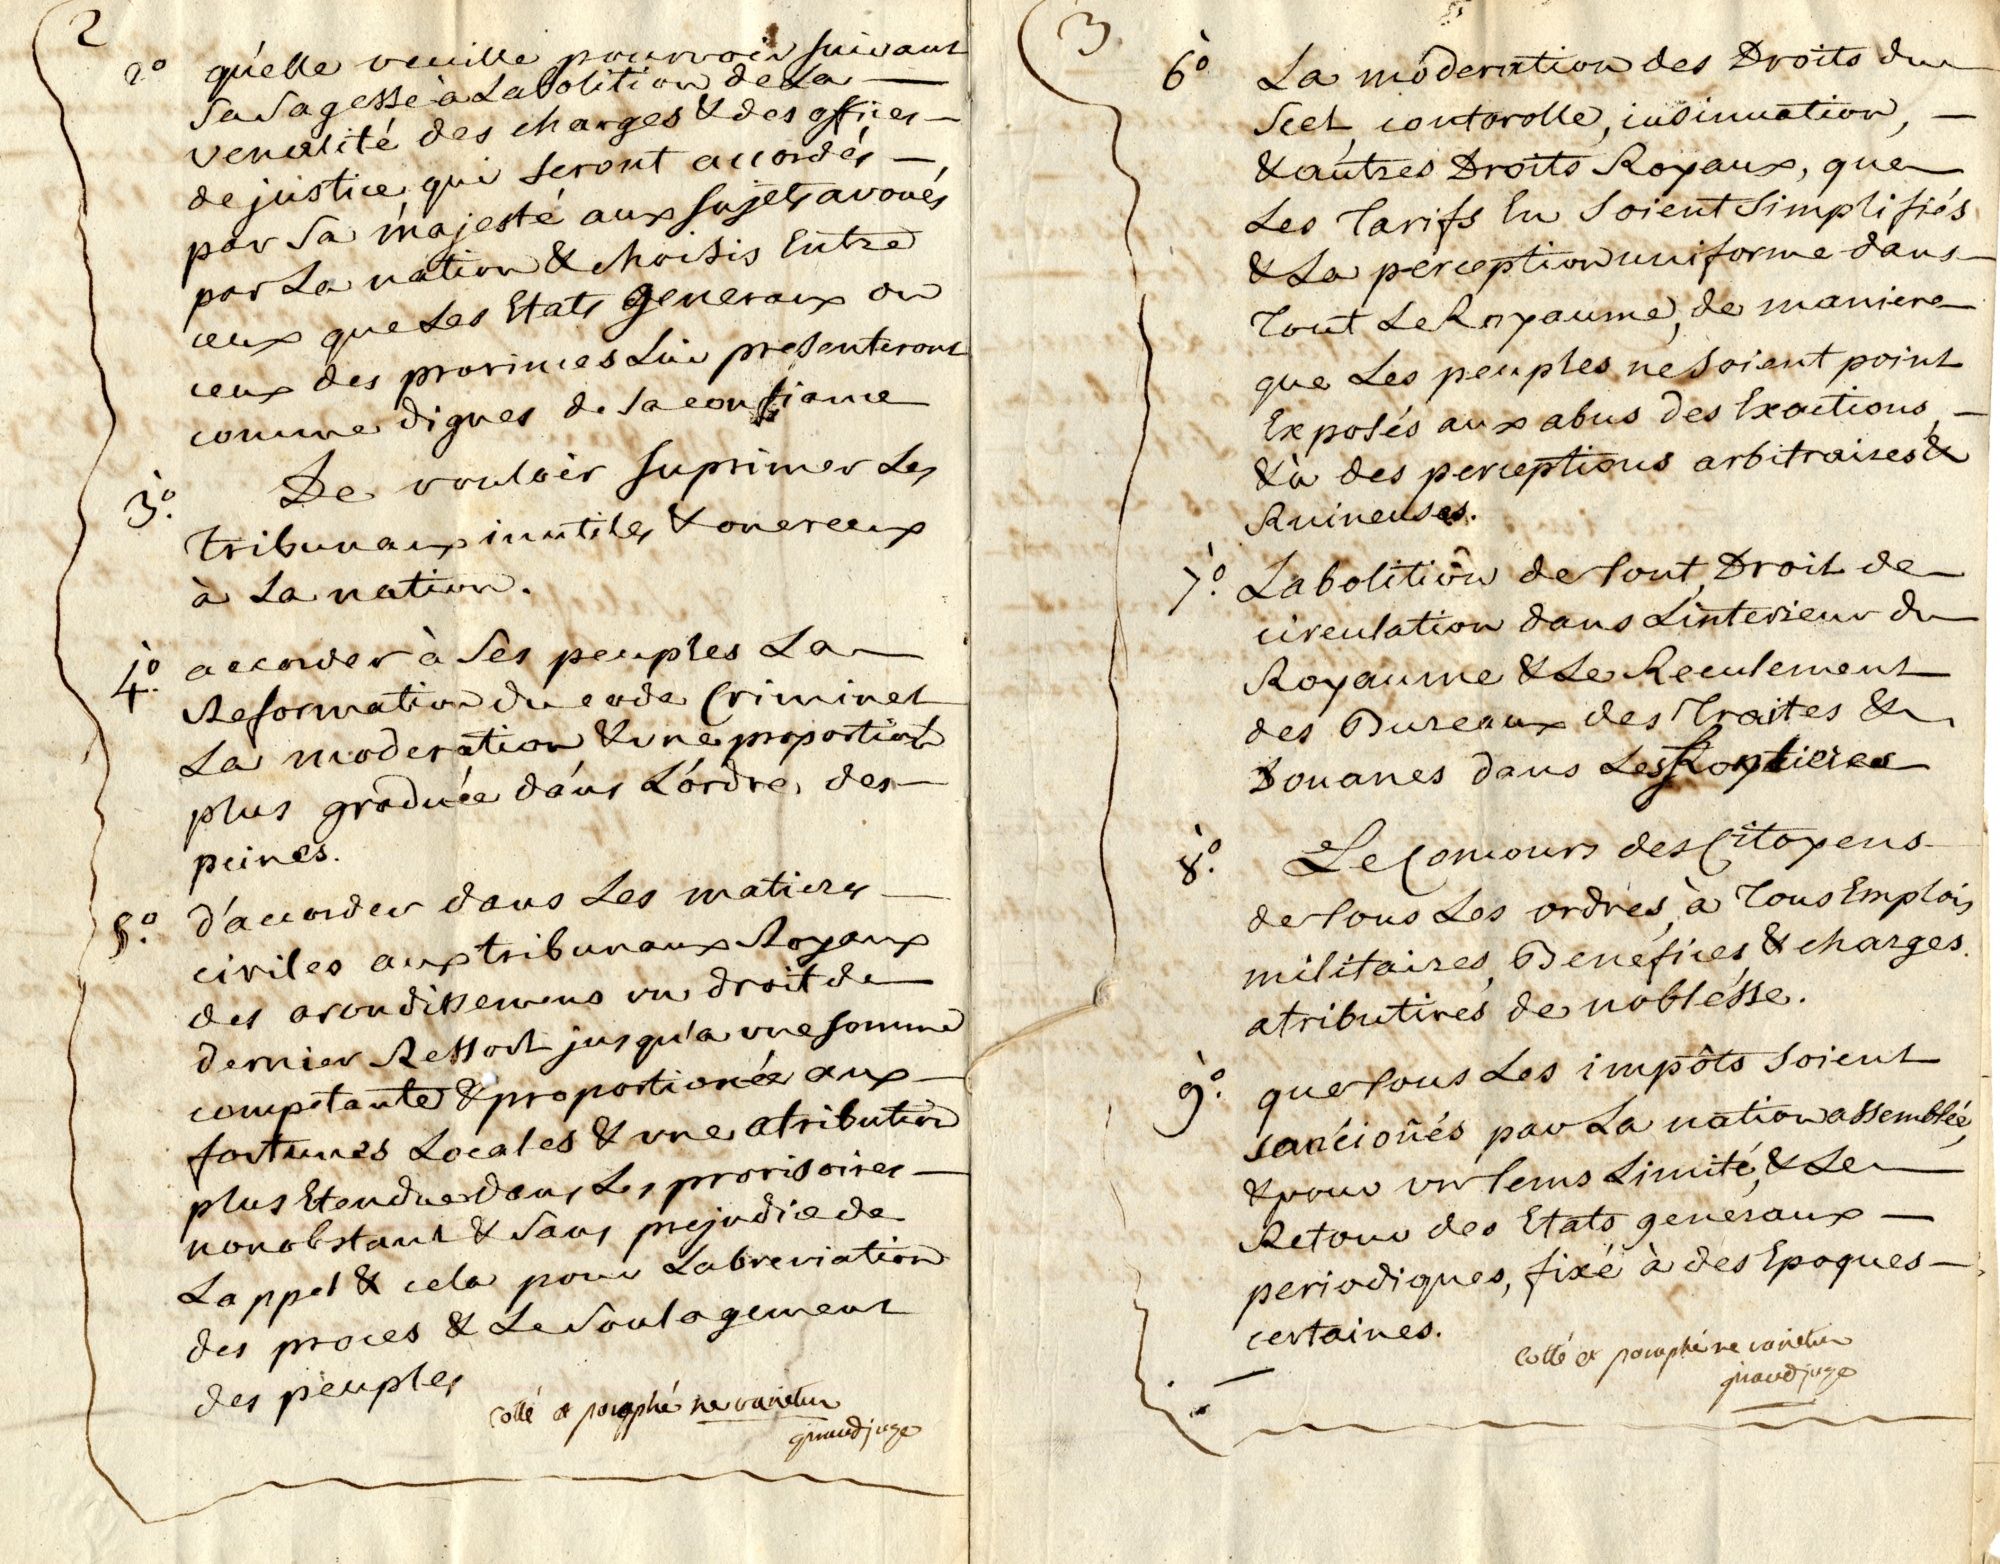 2
2º qu'elle veuille pourvoir suivant
sa sagesse à Labolition de La
venalité des charges & des offices
de justice qui seront accordés
par Sa majesté aux sujets avoués
par La nation & choisis Entre
ceux que Les Etats generaux ou
ceux des provinces Lui presenteront
comme dignes de sa confiance
3º. De vouloir suprimer Les
tribunaux inutiles & onereux
à La nation.
4º. accorder à ses peuples La
Reformation du code Criminel
La moderation & une proportion
plus graduée dans L'ordre des
peines.
5º. d'accorder dans Les matieres
civiles aux tribunaux Royaux
des arondissemens un droit de
dernier Ressort jusqu'a une somme
competante & proportionée aux
fortunes Locales & une atribution
plus Etendue dans Les provisoires
nonobstant & sans prejudice de
Lappel & cela pour Labreviation
des proces & Le Soulagement
des peuples
Cotté et paraphé ne varietur
giraud juge
3
6º La moderation des Droits du
Scel, contorolle, insinuation,
& autres Droits Royaux, que
Les Tarifs En Soient Simplifiés
& La perception uniforme dans
Tout Le Royaume, de maniere
que Les peuples ne soient point
Exposés aux abus des Exactions
& à des perceptions arbitraires &
Ruineuses.
7º. Labolition de Tout Droit de
circulation dans Linterieur du
Royaume & Le Reculement
des Bureaux des Traites &
Douanes dans Les frontieres
8º. Le Concours des Citoyens
de Tous Les ordres, à Tous Emplois
militaires, Benefices & charges
atributives de noblésse.
9º. que Tous Les impôts soient
sanctionés par La nation assemblée,
& pour un tems Limité, & Le
Retour des Etats generaux
periodiques, fixé à des Epoques
certaines.
Cotté et paraphé ne varietur
giraud juge